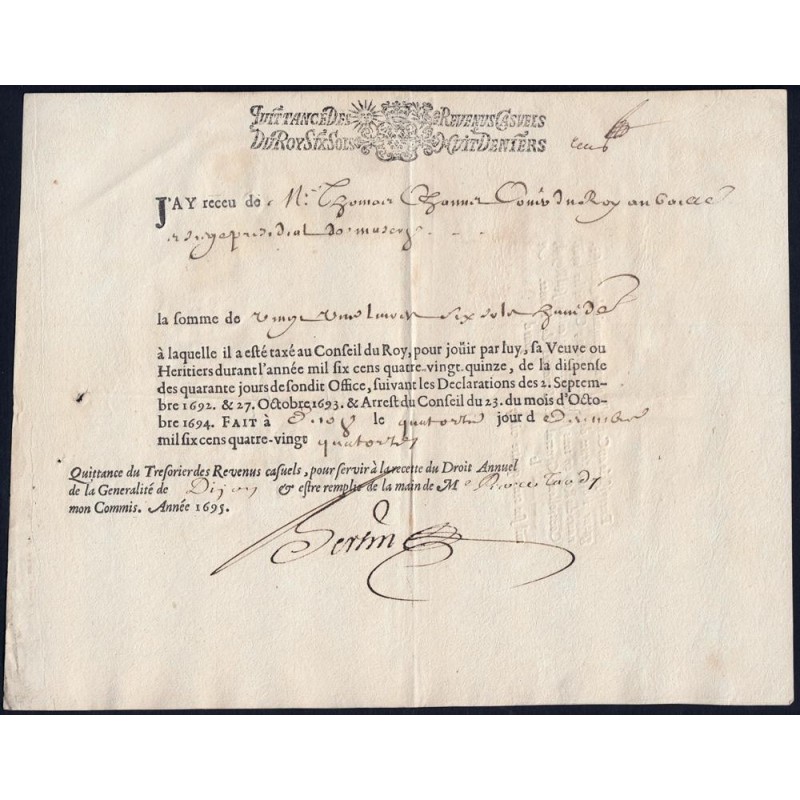 QUITTANCE DES REVENUS CASUELS
DU ROY SIX SOLS HUIT DENIERS
J'AY receu de Mr. Thomas Con.er du Roy au
presidial de
la somme de vingt une livres six sols huit d.
à laquelle il a esté taxé au Conseil du Roy, pour joüir par luy, sa Veuve ou
Heritiers durant l'année mil six cens quatre-vingt-quinze, de la dispense
des quarante jours de sondit Office, suivant les Declarations des 2. Septem-
bre 1692. & 27. Octobre 1693. & Arrest du Conseil du 23. du mois d'Octo-
bre 1694. FAIT à le quatorze jour d decembre
mil six cens quatre-vingt quatorze
Quittance du Tresorier des Revenus casuels, pour servir à la recette du Droit Annuel
de la Generalité de Dijon & estre remplie de la main de Me
mon Commis. Année 1695.
Bertin